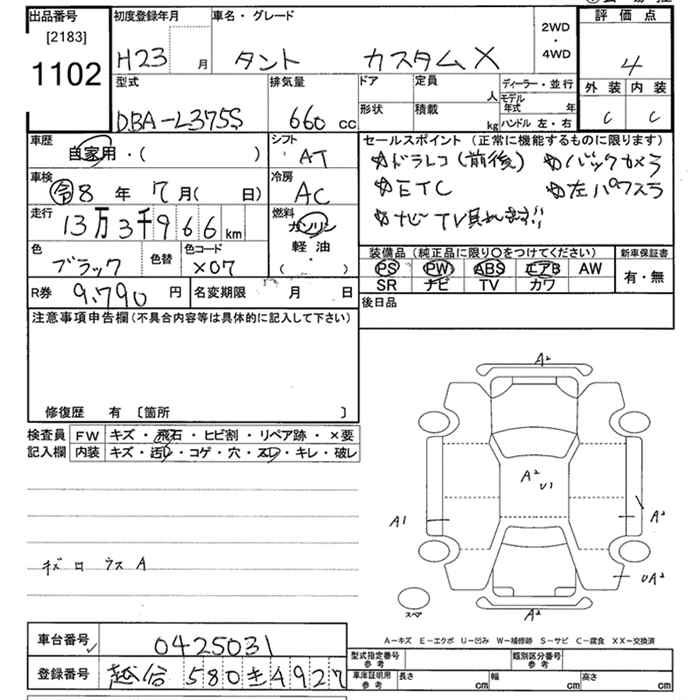 出品番号 初度登録年月 車名・グレード 2WD・4WD 評価点
[2183]
1102 H23 月 タント カスタムX 4
外装 内装
C C
型式 排気量 ドア 定員 人 ディーラー・並行
DBA-L375S 660 cc 形状 積載 kg モデル年式 年
ハンドル 左・右
車歴 シフト セールスポイント(正常に機能するものに限ります)
自家用・( ) AT ☆ドラレコ(前後) ☆バックカメラ
車検 冷房 ☆ETC ☆左パワスラ
令8年 7月( 日) AC ☆ナビ TV見れます!!
走行 燃料
13万3千966km ガソリン
軽油
・
( )
色 色替 色コード 装備品(純正品に限り○をつけてください) 新車保証書
ブラック X07 PS PW ABS エアB AW 有・無
SR ナビ TV カワ
R券 9,790円 名変期限 月 日 後日品
注意事項申告欄(不具合内容等は具体的に記入して下さい)
修復歴 有 [箇所 ]
検査員 FW キズ・飛石・ヒビ割・リペア跡・×要
記入欄 内装 キズ・汚レ・コゲ・穴・スレ・キレ・破レ
A2
A2
U1
A1
A2
UA2
A2
スペア
A-キズ E-エクボ U-凹み W-補修跡 S-サビ C-腐食 XX-交換済
車台番号 0425031 型式指定番号 参考 類別区分番号 参考
登録番号 580 4927 車庫証明用 参考 長さ cm 幅 cm 高さ cm